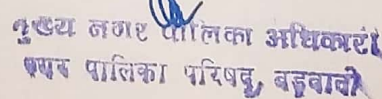 मुख्य नगर पालिका अधिकारी
नगर पालिका परिषद्, बड़वानी